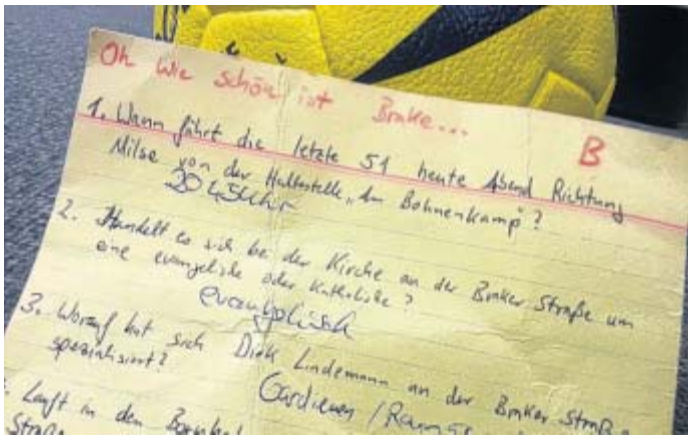 Oh wie schön ist Brake...
B
1. Wann fährt die letzte 51 heute Abend Richtung
Milse von der Haltestelle „Am Bohnenkamp"?
20:45 Uhr
2. Handelt es sich bei der Kirche an der Braker Straße um
eine evangelische oder katholische?
evangelisch
3. Worauf hat sich Dirk Lindemann an der Braker Straße
spezialisiert?
Gardienen /
Lauft in den
Straße